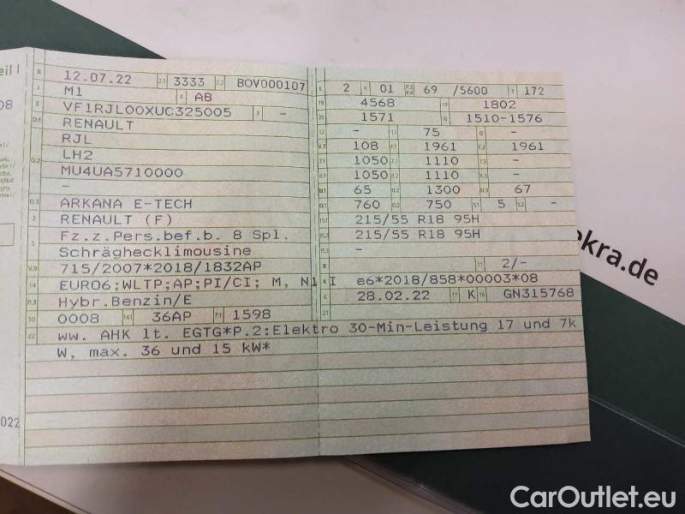 eil I
12.07.22 3333 BOV000107 2 01 69 /5600 172
M1 AB 4568 1802
VF1RJL00XUC325005 - 1571 1510-1576
RENAULT - 75 -
RJL 108 1961 1961
LH2 1050 1110 -
MU4UA5710000 1050 1110 -
- 65 1300 67
ARKANA E-TECH 760 750 5 -
RENAULT (F) 215/55 R18 95H
Fz.z.Pers.bef.b. 8 Spl. 215/55 R18 95H
Schräghecklimousine -
715/2007*2018/1832AP 2/-
EURO6;WLTP;AP;PI/CI; M, N1 I e6*2018/858*00003*08
Hybr.Benzin/E 28.02.22 K GN315768
0008 36AP 1598
ww. AHK lt. EGTG*P.2:Elektro 30-Min-Leistung 17 und 7k
W, max. 36 und 15 kW*
ekra.de
022
CarOutlet.eu